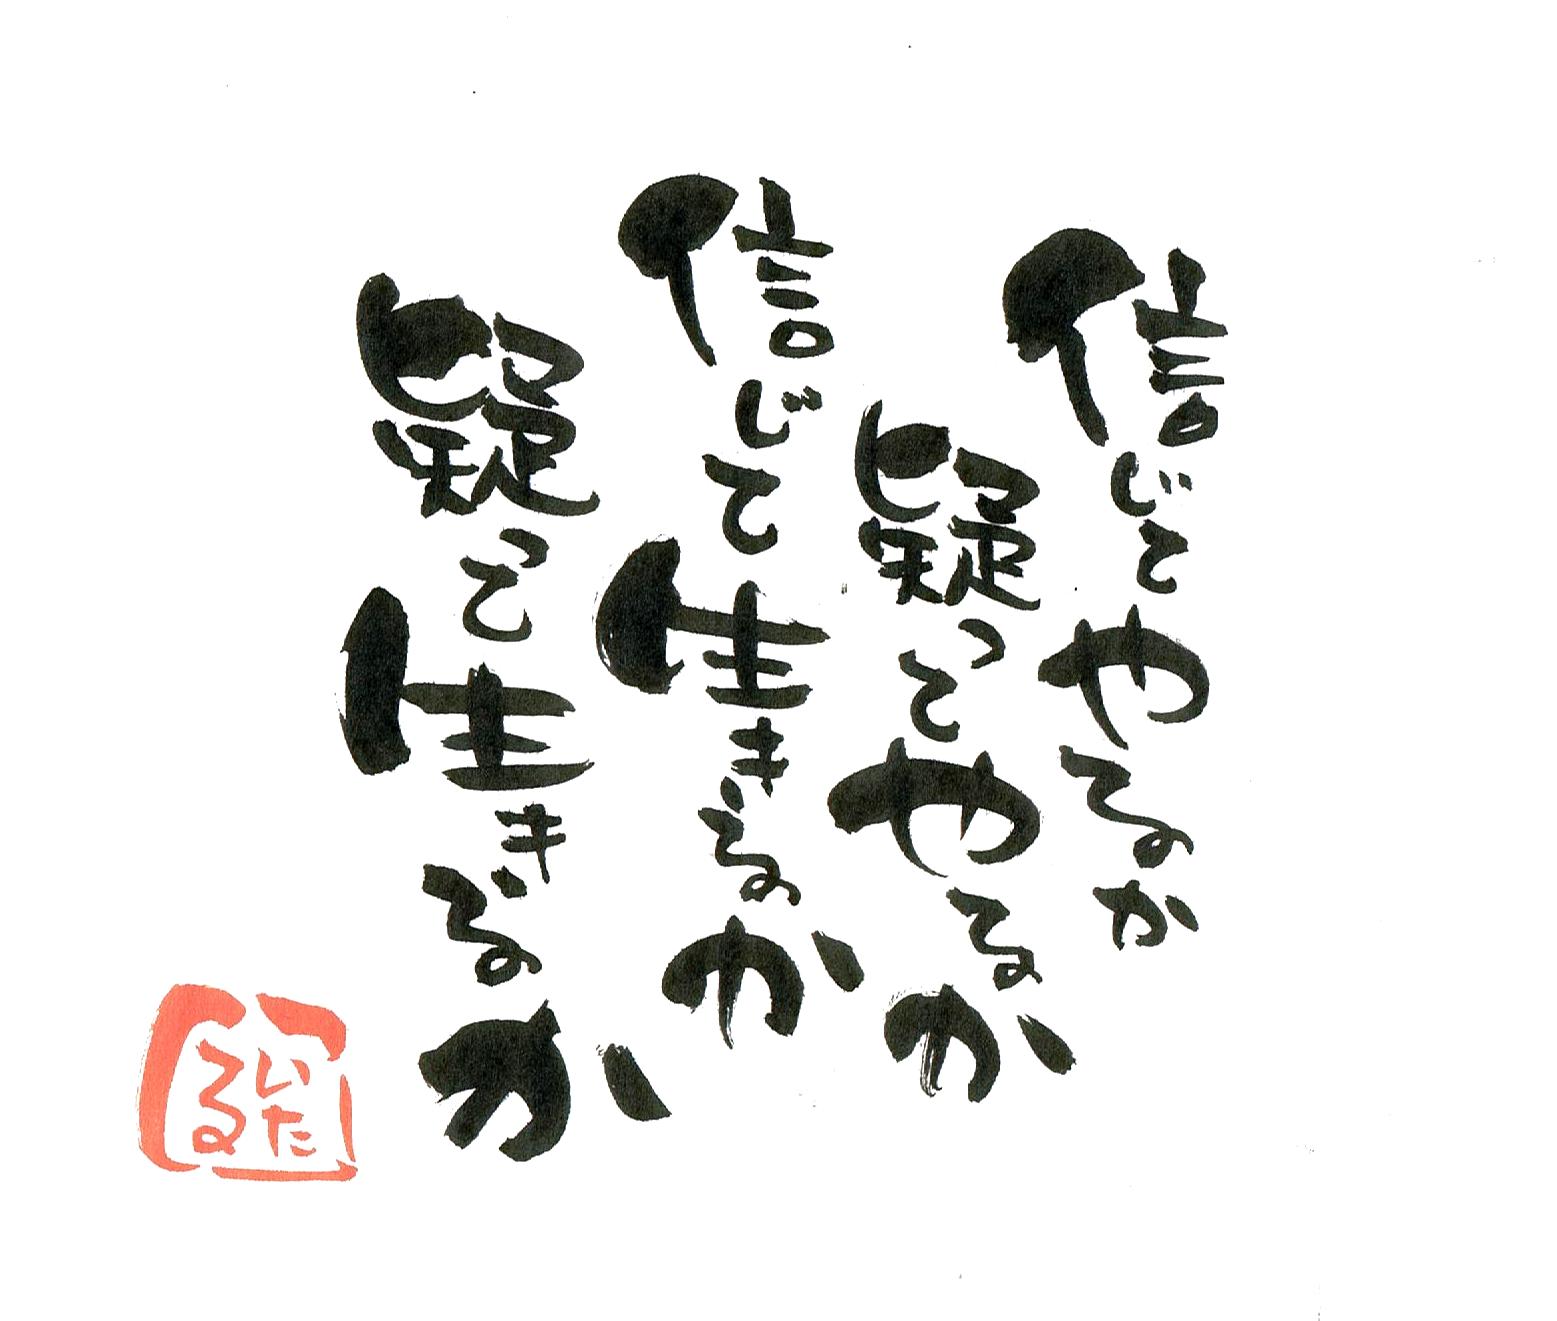 信じてやるか
疑ってやるか
信じて生きるか
疑って生きるか
いた
る